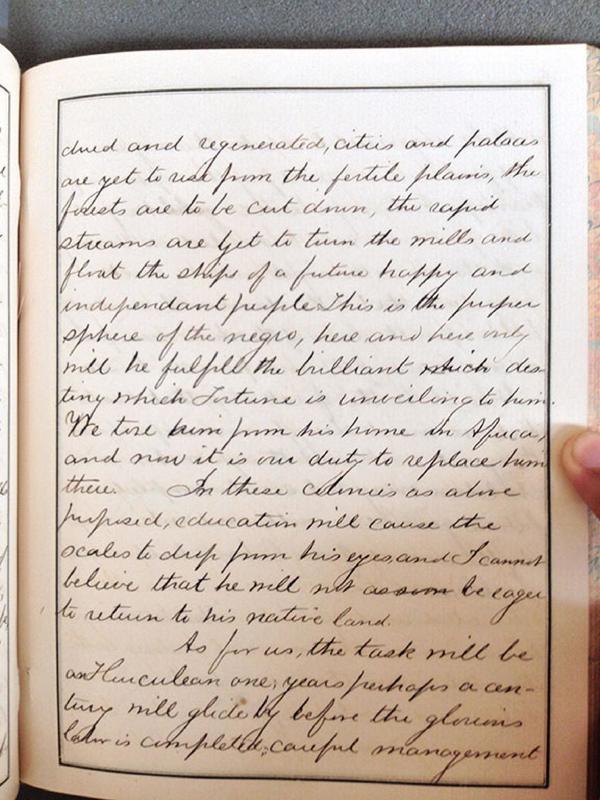 dued and regenerated, cities and palaces
are yet to rise from the fertile plains, the
forests are to be cut down, the rapid
streams are yet to turn the mills and
float the ships of a future happy and
independant people. This is the proper
sphere of the negro, here and here only
will he fulfill the brilliant which des-
tiny which Fortune is unveiling to him.
We tore him from his home in Africa,
and now it is our duty to replace him
there. In these colonies as above
proposed, education will cause the
scales to drop from his eyes, and I cannot
believe that he will not as soon be eager
to return to his native land.
As for us, the task will be
an Hurculean one; years perhaps a cen-
tury will glide by before the glorious
labor is completed; careful management